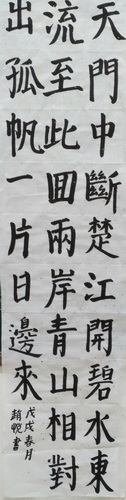 天門中斷楚江開碧水東
流至此回兩岸青山相對
出孤帆一片日邊來
戊戌春月
趙悅書